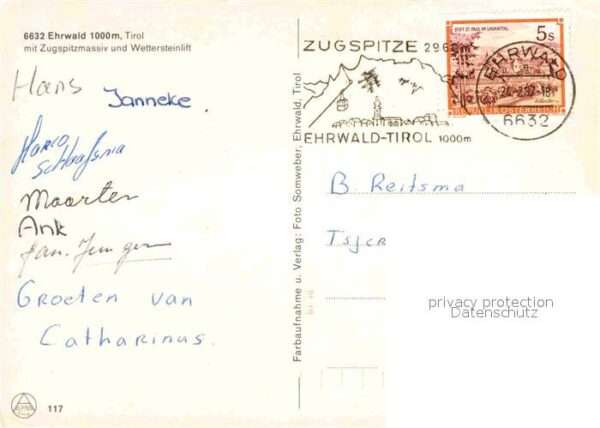 6632 Ehrwald 1000m, Tirol
mit Zugspitzmassiv und Wettersteinlift
Hans
Janneke.
Marco
Schaafsma
Maarten
Ank
Jan.
Groeten van
Catharinus.
117
Farbaufnahme u. Verlag: Foto Somweber, Ehrwald, Tirol
ZUGSPITZE 2963m
EHRWALD-TIROL 1000m
STIFT ST. PAUL IM LAVANTTAL
5s
REPUBLIK ÖSTERREICH
EHRWALD
6632
B. Reitsma
privacy protection
Datenschutz